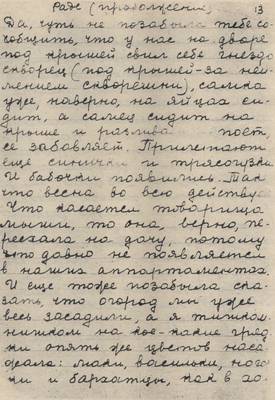 Рае (продолжение) 13
Да, чуть не позабыла тебе со-
общить, что у нас на дворе
под крышей свил себе гнездо
скворец (под крышей-за неи-
мением скворешни), самка
уже, наверно, на яйцах си-
дит, а самец сидит на
крыше и поет
ее забавляет. Прилетают
еще синички и трясогузки
И бабочки появились. Так
что весна во всю действу
Что касается товарища
мыши, то она, верно, пе-
реехала на дачу, потому
что давно не появляется
в наших аппортаментах.
И еще тоже позабыла ска-
зать, что огород мы уже
весь засадили, а я тишком-
нишком на кое-какие гряд-
ки опять же цветов наса
жала: маки, васильки, ного
ки и бархатцы, как в до-